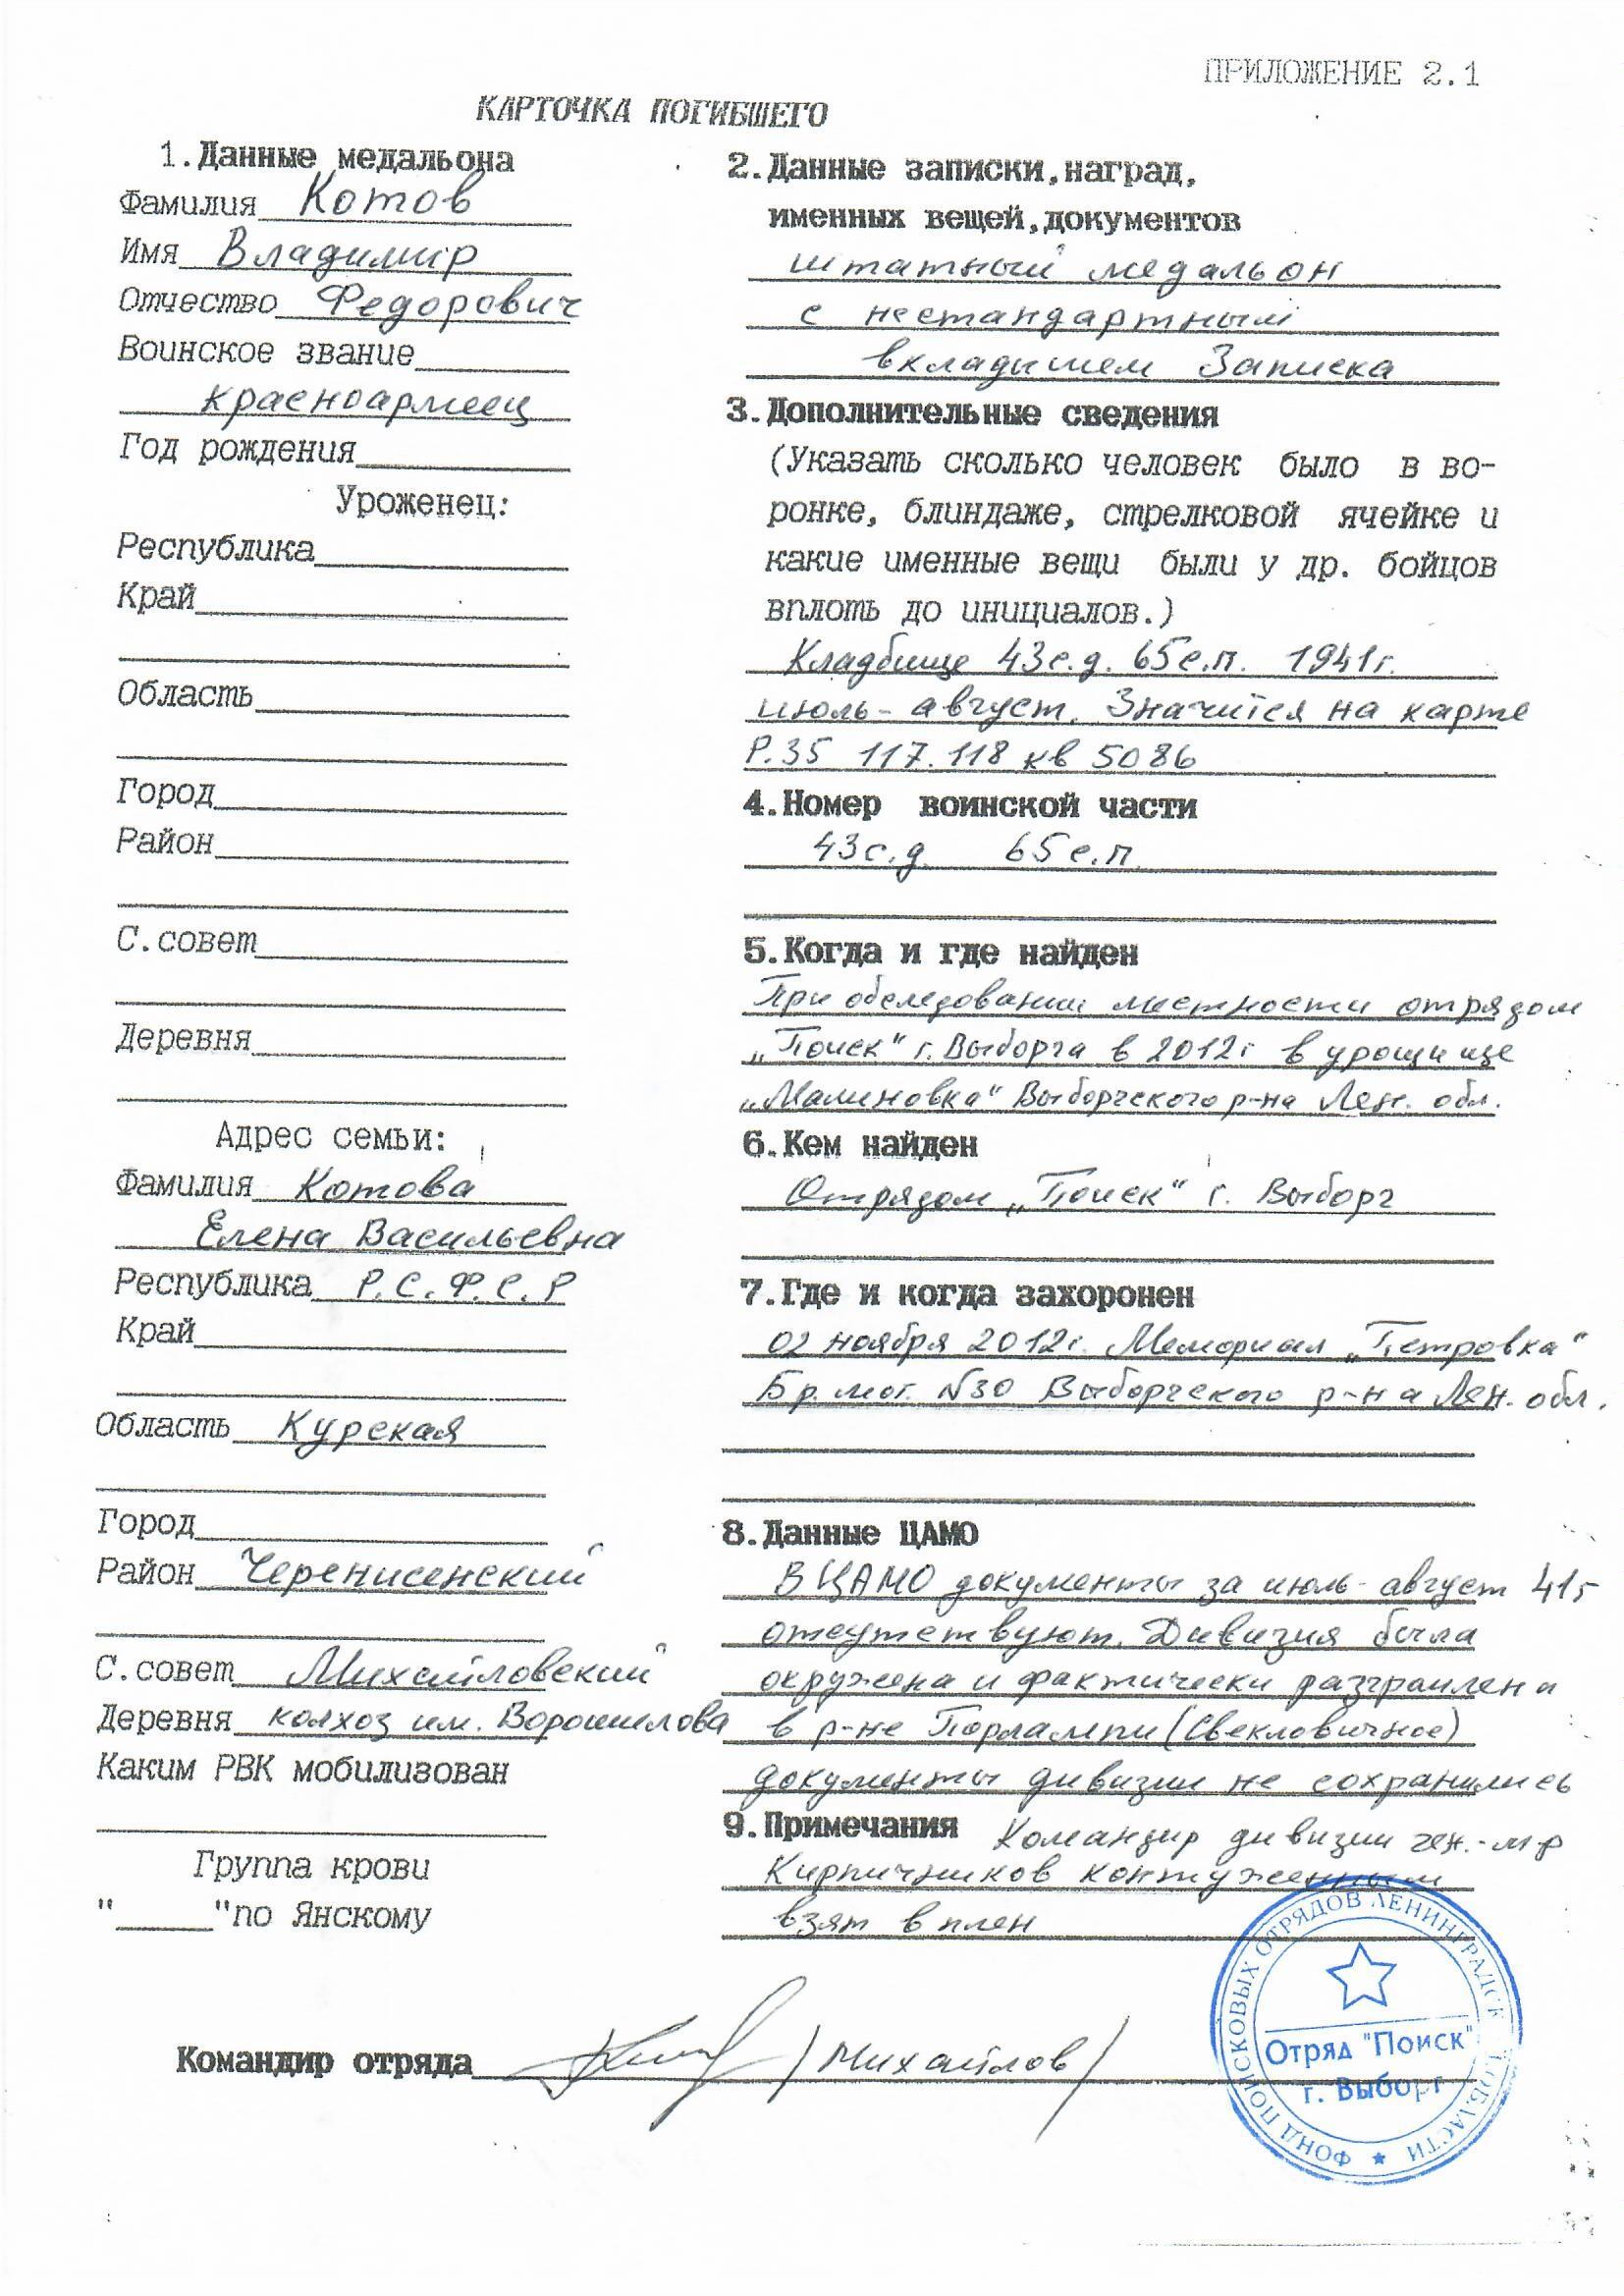 ПРИЛОЖЕНИЕ 2.1
КАРТОЧКА ПОГИБШЕГО
1.Данные медальона
Фамилия Котов
Имя Владимир
Отчество Федорович
Воинское звание
красноармеец
Год рождения
Уроженец:
Республика
Край
Область
Город
Район
С.совет
Деревня
Адрес семьи:
Фамилия Котова
Елена Васильевна
Республика Р.С.Ф.С.Р
Край
Область Курская
Город
Район Черенисенский
С.совет Михайловский
Деревня колхоз им. Ворошилова
Каким РВК мобилизован
Группа крови
"_____"по Янскому
2.Данные записки,наград,
именных вещей,документов
штатный медальон
с нестандартным
вкладышем Записка
3.Дополнительные сведения
(Указать сколько человек было в во-
ронке, блиндаже, стрелковой ячейке и
какие именные вещи были у др. бойцов
вплоть до инициалов.)
Кладбище 43с.д. 65с.п. 1941г.
июль-август. Значится на карте
Р.35 117.118 кв 5086
4.Номер воинской части
43с.д. 65с.п.
5.Когда и где найден
При обследовании местности отрядом
„Поиск“ г. Выборга в 2012г в урочище
„Малиновка“ Выборгского р-на Лен. обл.
6.Кем найден
Отрядом „Поиск“ г. Выборг
7.Где и когда захоронен
02 ноября 2012г. Мемориал „Петровка“
Бр.мог. №30 Выборгского р-на Лен. обл.
8.Данные ЦАМО
В ЦАМО документы за июль-август 41г
отсутствуют. Дивизия была
окружена и фактически разгромлена
в р-не Порлампи (Свекловичное)
документы дивизии не сохранились
9.Примечания Командир дивизии ген.-м-р
Кирпичников контуженным
взят в плен
Командир отряда /Михайлов/
ФОНД ПОИСКОВЫХ ОТРЯДОВ ЛЕНИНГРАДСК ОБЛАСТИ
Отряд "Поиск"
г. Выборг